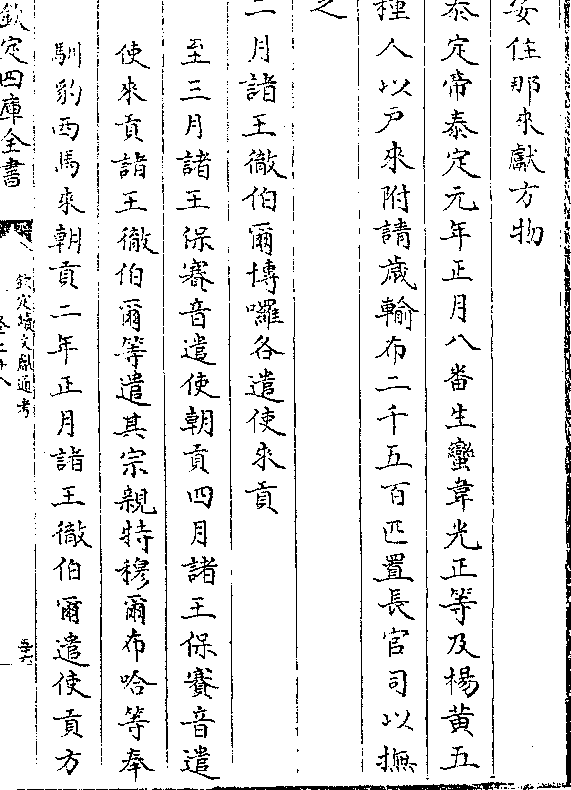 安住那來獻方物
泰定帝泰定元年正月八番生蠻韋光正等及楊黄五
種人以戸來附請歲輸布二千五百匹置長官司以撫
之
二月諸王徹伯爾博囉各遣使來貢
至三月諸王保賽音遣使朝貢四月諸王保賽音遣
使來貢諸王徹伯爾等遣其宗親特穆爾布哈等奉
馴豹西馬來朝貢二年正月諸王徹伯爾遣使貢方
欽定四庫全書
欽定續文獻通考